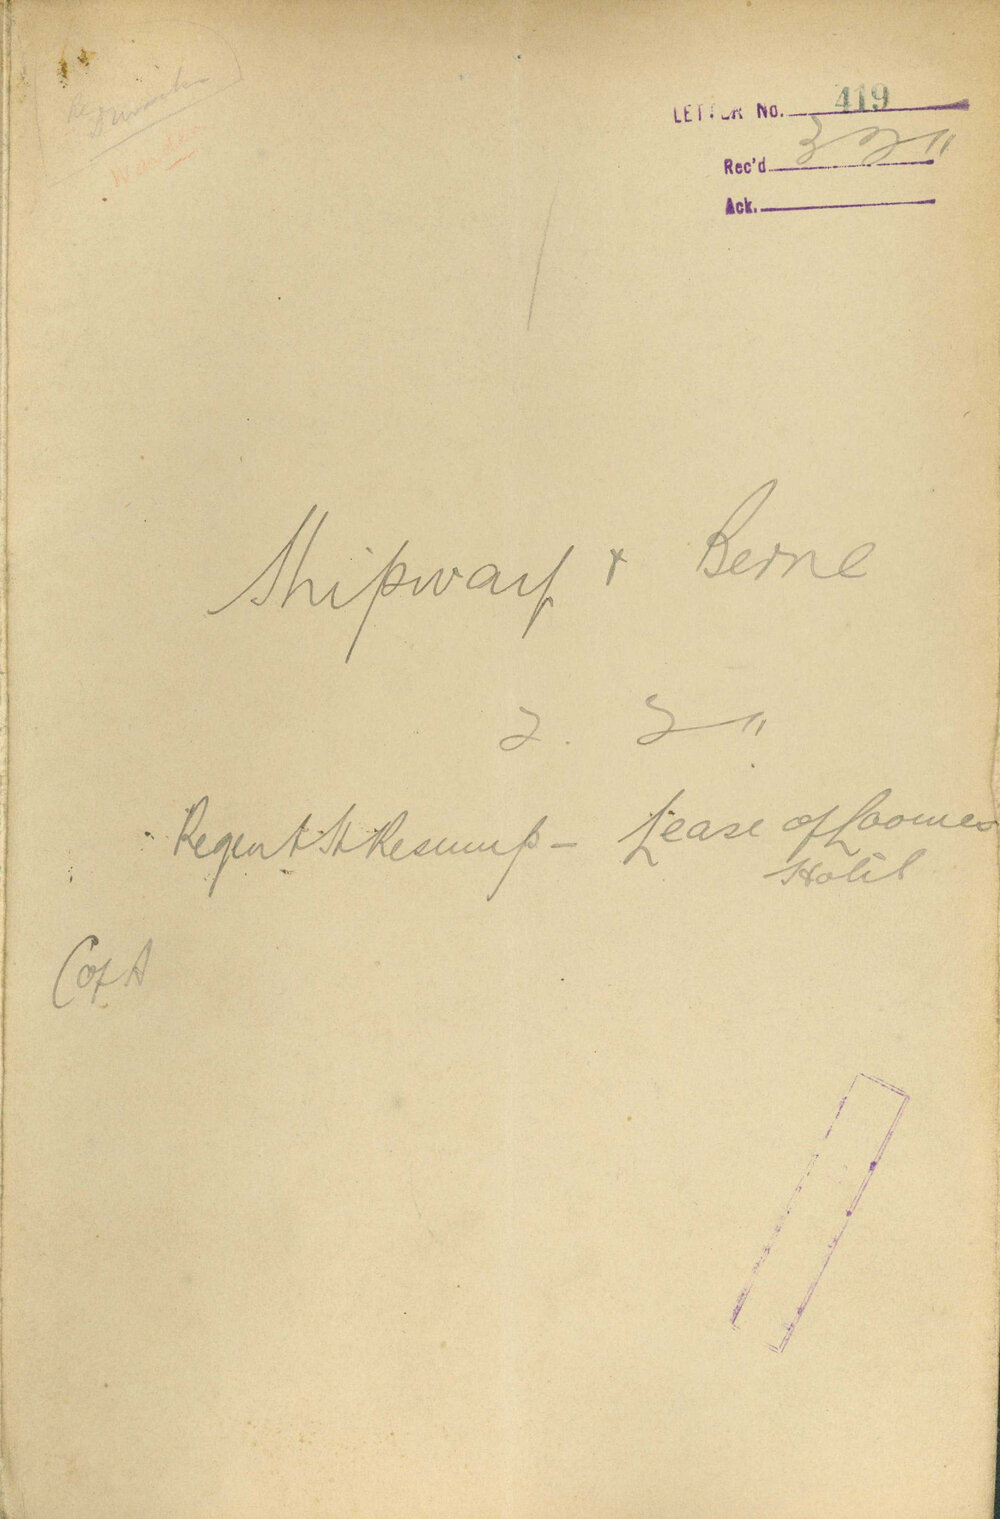 LETTER No. 419
Rec'd 3 2 11
Ack.
Shipway + Berne
2. 2 11
Regent St Resump – Lease of Coomes
Hotel
C of S